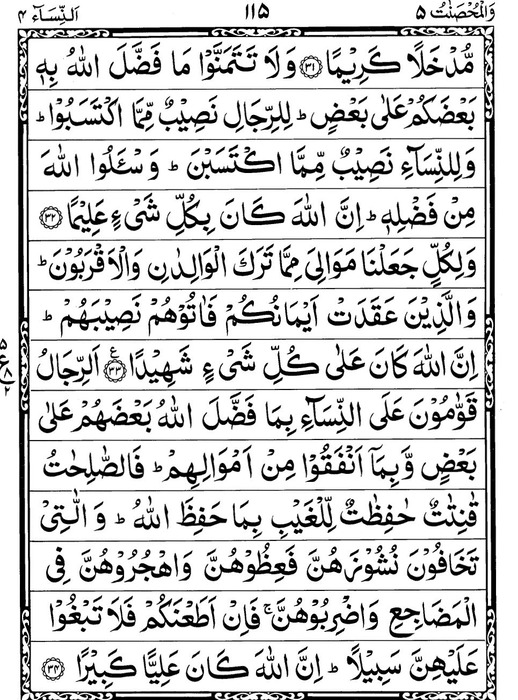 وَالْمُحْصَنٰتُ ۵ ۱۱۵ اَلنِّسَآء ۴
مُّدْخَلًا كَرِيْمًا ﴿۳۱﴾ وَلَا تَتَمَنَّوْا مَا فَضَّلَ اللهُ بِهٖ
بَعْضَكُمْ عَلٰى بَعْضٍ ؕ لِلرِّجَالِ نَصِيْبٌ مِّمَّا اكْتَسَبُوْا ؕ
وَلِلنِّسَآءِ نَصِيْبٌ مِّمَّا اكْتَسَبْنَ ؕ وَسْـَٔلُوا اللهَ
مِنْ فَضْلِهٖ ؕ اِنَّ اللهَ كَانَ بِكُلِّ شَىْءٍ عَلِيْمًا ﴿۳۲﴾
وَلِكُلٍّ جَعَلْنَا مَوَالِىَ مِمَّا تَرَكَ الْوَالِدٰنِ وَالْاَقْرَبُوْنَ ؕ
وَالَّذِيْنَ عَقَدَتْ اَيْمَانُكُمْ فَاٰتُوْهُمْ نَصِيْبَهُمْ ؕ
اِنَّ اللهَ كَانَ عَلٰى كُلِّ شَىْءٍ شَهِيْدًا ﴿۳۳﴾ ع اَلرِّجَالُ
قَوّٰمُوْنَ عَلَى النِّسَآءِ بِمَا فَضَّلَ اللهُ بَعْضَهُمْ عَلٰى
بَعْضٍ وَّبِمَآ اَنْفَقُوْا مِنْ اَمْوَالِهِمْ ؕ فَالصّٰلِحٰتُ
قٰنِتٰتٌ حٰفِظٰتٌ لِّلْغَيْبِ بِمَا حَفِظَ اللهُ ؕ وَالّٰتِىْ
تَخَافُوْنَ نُشُوْزَهُنَّ فَعِظُوْهُنَّ وَاهْجُرُوْهُنَّ فِى
الْمَضَاجِعِ وَاضْرِبُوْهُنَّ ۚ فَاِنْ اَطَعْنَكُمْ فَلَا تَبْغُوْا
عَلَيْهِنَّ سَبِيْلًا ؕ اِنَّ اللهَ كَانَ عَلِيًّا كَبِيْرًا ﴿۳۴﴾